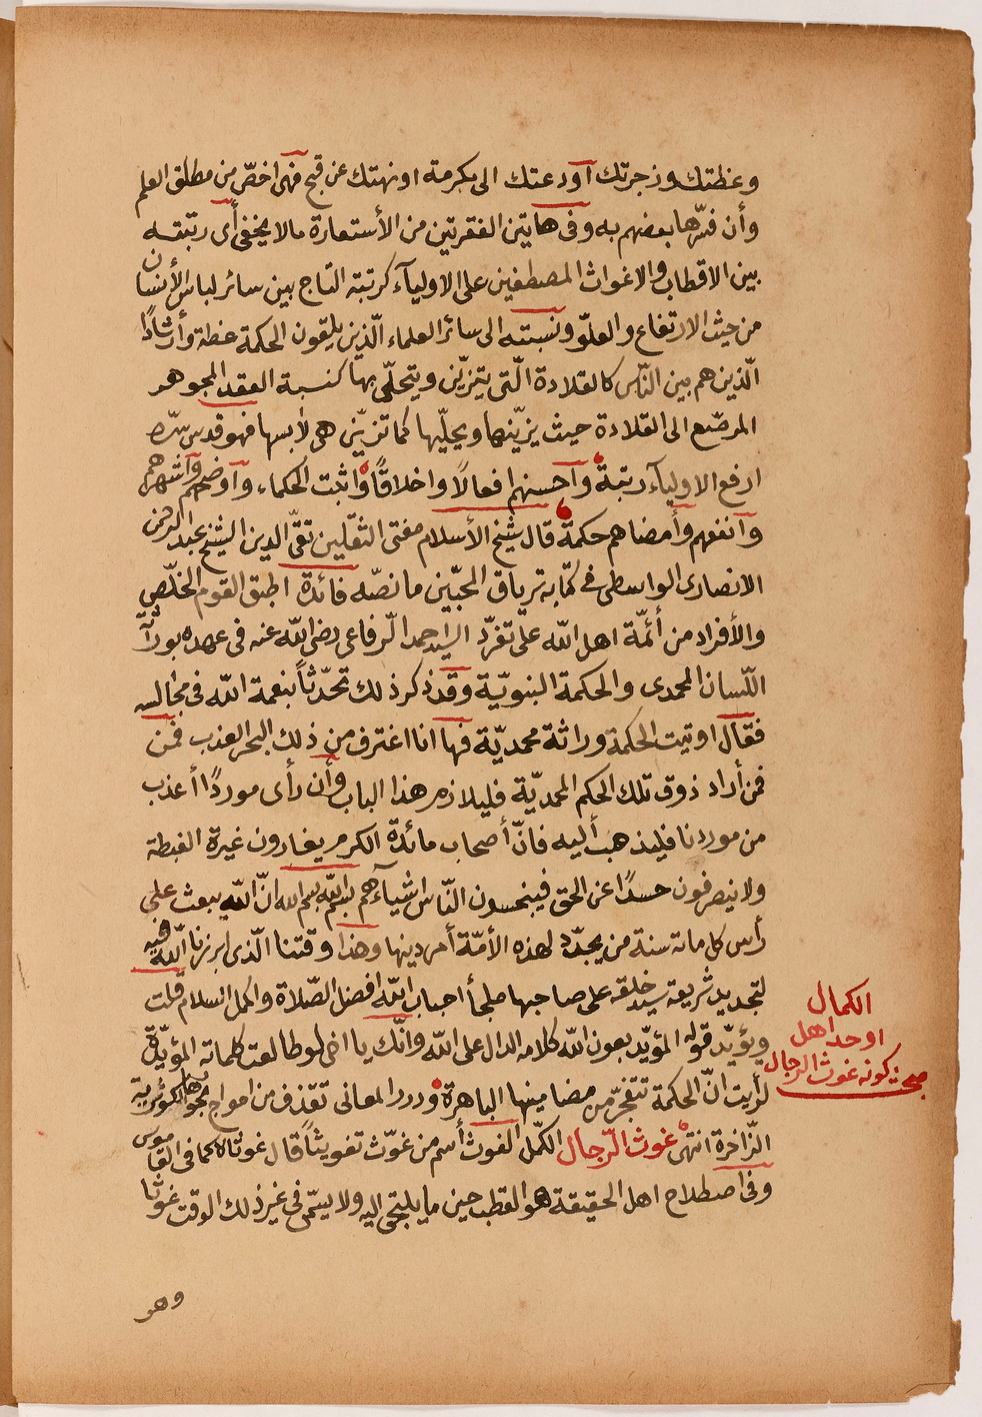 وعظتك وزجرتك آودعتك الى مكرمة او نهتك عن قبح فهى اخصّ من مطلق العلم
وأن فسّرها بعضهم به وفى هاتين الفقرتين من الأستعارة مالا يخفى أى رتبته
بين الاقطاب والاغواث المصطفين على الاوليآء كرتبته التاج بين سائر لباس الأنسان
من حيث الارتفاع والعلوّ ونسبته الى سائر العلماء الّذين يلقون الحكمة عظة وأرشادًا
الّذين هم بين النّاس كالقلادة الّتى يتزيّن ويتحلّى بها كنسبة العقد المجوهر
المرصّع الى القلادة حيث يزيّنها ويحلّيها كما تزيّن هى لأبسها فهو قدس سرّه
ارفع الاوليآء رتبة وآحسنهم افعالاً واخلاقًا واثبت الحكماء وآوضحهم وآشهرهم
وآنفعهم وأمضاهم حكمة قال شيخ الأسلام مفتى الثقلين تقىّ الدين الشيخ عبد الرحمن
الانصارى الواسطى فى كتابه ترياق المحبّين ما نصّه فائدة اطبق القوم الخلّص
والأفراد من أئمّة اهل اللّه على تفرّد السيد احمد الرّفاعى رضى اللّه عنه فى عهده بوراثة
اللّسان المحمدى والحكمة النبويّة وقد ذكر ذلك تحدّثاً بنعمة اللّه فى مجالسه
فقال اوتيت الحكمة وراثة محمديّة فها انا اغترف من ذلك البحر العذب فمن
فمن أراد ذوق تلك الحكم المحمديّة فليلازم هذا الباب وأن رأى موردًا أعذب
من موردنا فليذهب أليه فانّ أصحاب مائدة الكرم يغارون غيرة الغبطة
ولا ينصرفون حسدًا عن الحق فيبخسون النّاس اشيآءهم بسم اللّه بسم الله انّ اللّه يبعث على
رأس كل مائة سنة من يجدّد لهذه الأمّة أمر دينها وهذا وقتنا الّذى ابرزنا اللّه فيه
لتجديد شريعة سيد خلقه على صاحبها ملجأ احباب اللّه افضل الصّلاة واكمل السلام قلت
ويؤيّد قوله المؤيّد بعون اللّه كلامه الدال على اللّه وانّك يا اخى لو طالعت كلماته المؤيّدة
لرأيت انّ الحكمة تتفجّر من مضامينها الباهرة ودرر المعانى تقذف من امواج بحورها الكوثرية
الزّاخرة انتهى غوث الرّجال الكمّل الغوث أسم من غوّث تغويثاً قال غوثاه كما فى القاموس
وفى اصطلاح اهل الحقيقة هو القطب حين ما يلتجى اليه ولا يسمّى فى غير ذلك الوقت غوثا
وهو
الكمال
اوحد اهل
كونه غوث الرجال
صح